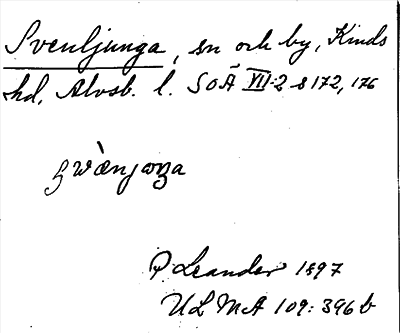 Svenljunga, sn och by, Kinds
hd, Älvsb. l. SOÄ VII:2 s 172, 176
P. Leander 1897
ULMA 109:396 b